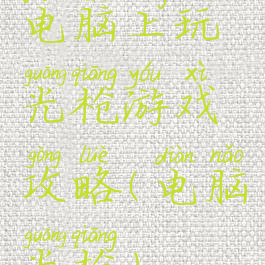 电脑上玩
guāng qiāng yóu xì
光枪游戏
gōng lüè diàn nǎo
攻略(电脑
guāng qiāng
光枪)